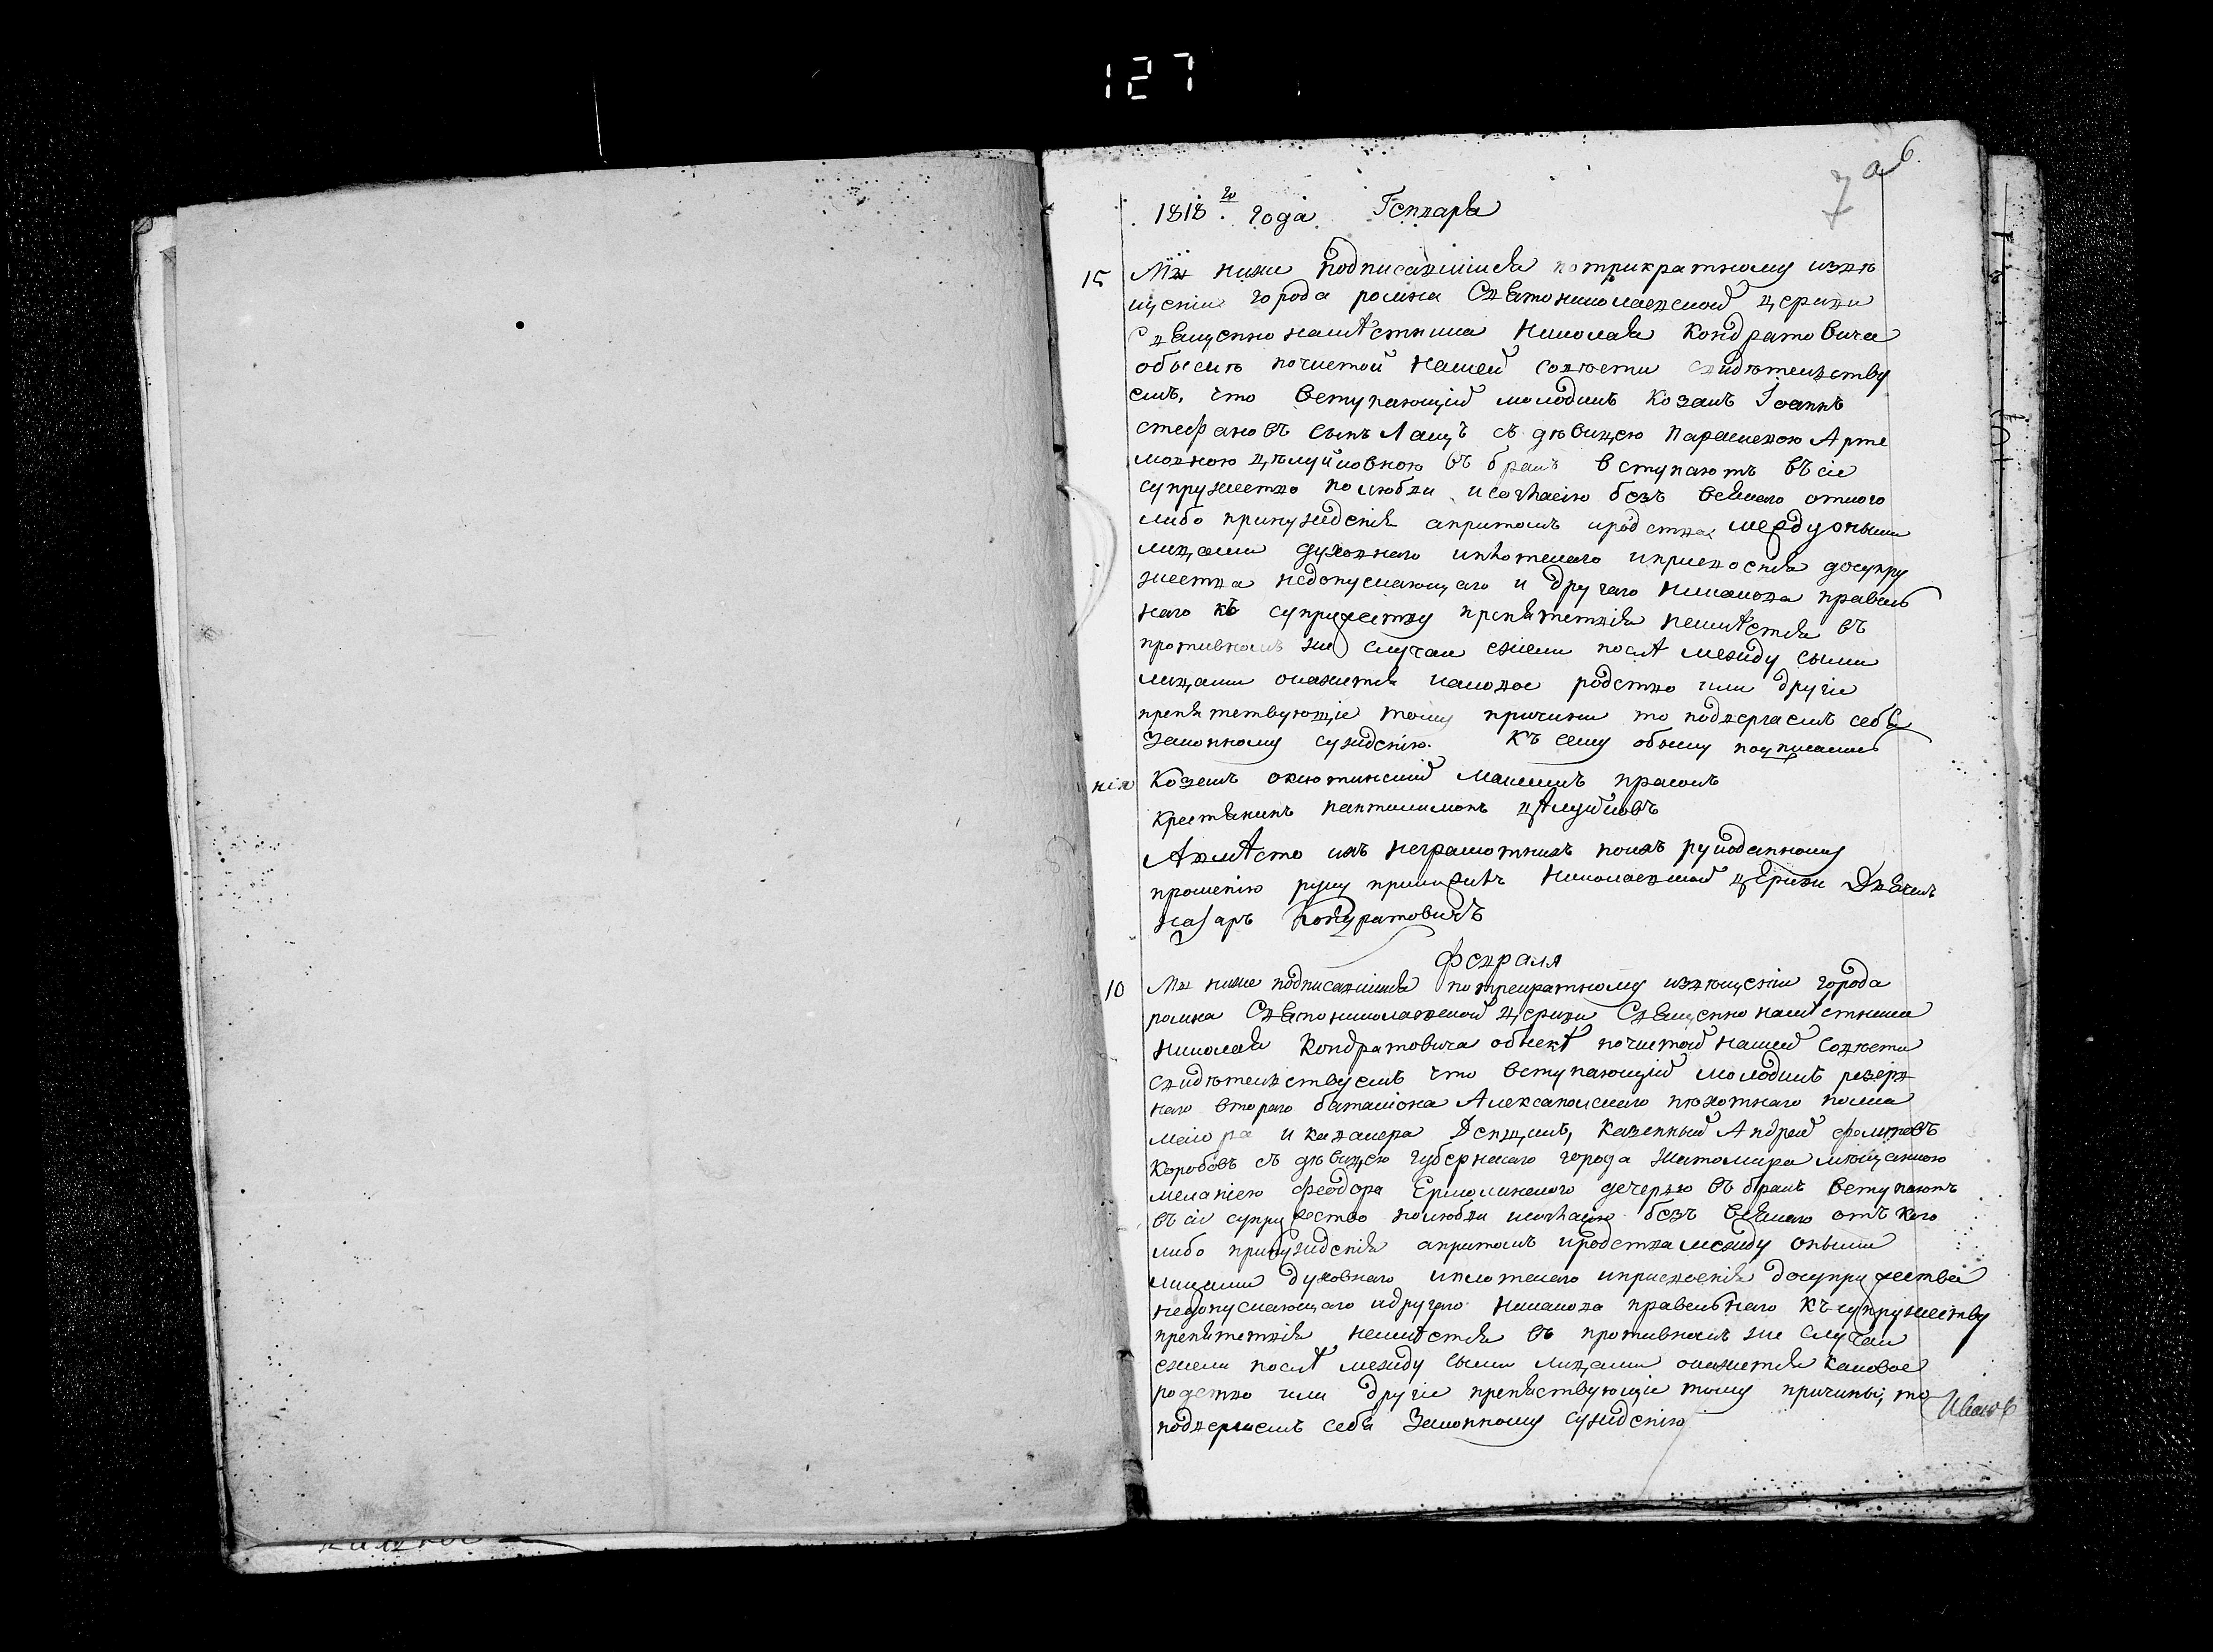 127
7 а 6.
1818го года Генваря
15 Мы ниже подписавшиися потрикратному извѣ
щенію города ромна Святониколаевской церкви
священнонамѣстника Николая Кондратовича
обыскѣ почистой нашей совѣсти свидѣтельству
емъ, что вступающій молодикъ Козакъ Іоаннъ
стефановъ сынъ Лащъ съ дѣвицею Параскевою Арте
мовною цѣлуйковною въ бракъ вступаютъ въ сіе
супружество по любви исогласію безъ всякаго откого
либо принужденія апритомъ иродства между оными
лицами духовнаго иплотскаго иприсвоенія досупру
жества недопускающаго и другаго никакова правиль
наго къ супружеству препятствія неимѣется въ
противномъ же случаи ежели послѣ между сыми
лицами окажится каковое родство или другіе
препятствующіе тому причины то подвергаемъ себя
Законному сужденію. Къ сему обыску подписались
нія Козакъ Максимъ
крестянинъ пантилимонъ цѣлуйковъ
Авмѣсто ихъ неграмотныхъ поихъ рукоданному
прошенію руку приложилъ Николаевской церкви Дьячекъ
назаръ Кондратовичъ
февраля
10 Мы ниже подписавшиися потрекратному извѣщенію города
ромна Святониколаевской церкви Священнонамѣстника
Николая Кондратовича обыскѣ почистой нашей совѣсти
свидѣтельствуемъ что вступающій молодикъ резерв
наго втораго баталіона Алексапольскаго пѣхотнаго полка
маіора и кавалера Денщикъ, казенный Андрей
Коробовъ съ дѣвицею губернскаго города Житомира мѣщанкою
меланіею феодора Ермолинскаго дочерью въ бракъ вступаютъ
въ сіе супружество полюбви исогласію безъ всякаго отъ кого
либо принужденія апритомъ иродства между оными
лицами духовнаго иплотскаго иприсвоенія досупружества
недопускающаго идругаго никакова правельнаго къ супружеству
препятствія неимѣется въ противномъ же случаи
ежели послѣ между сыми лицами окажится каковое
родство или другіе препяствующіе тому причины, то
подвергаемъ себя Законному сужденію